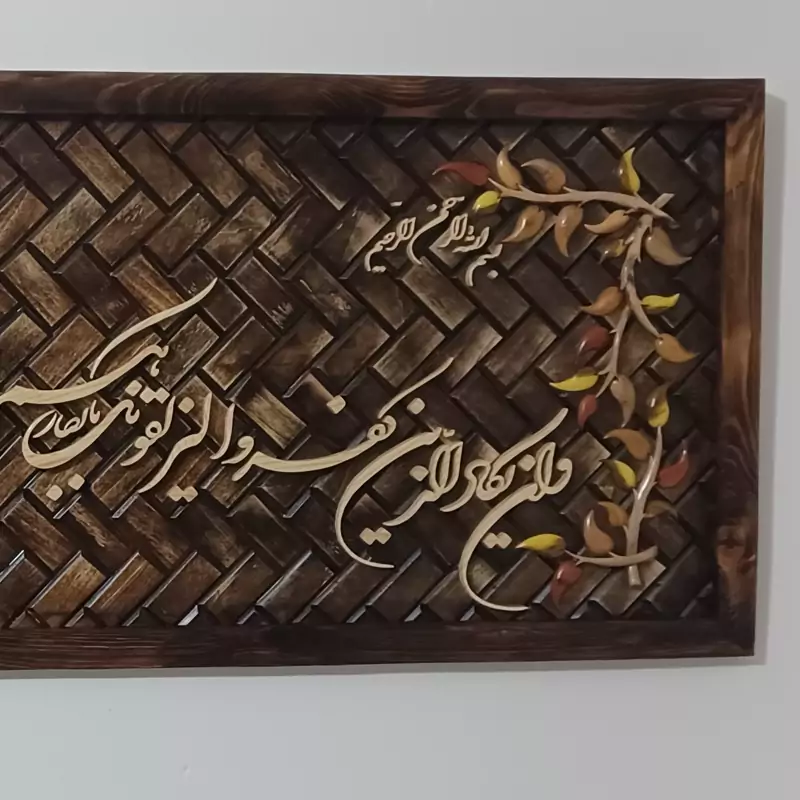 بسم الله الرحمن الرحیم
وان یکاد الذین کفروا لیزلقونک بابصارهم